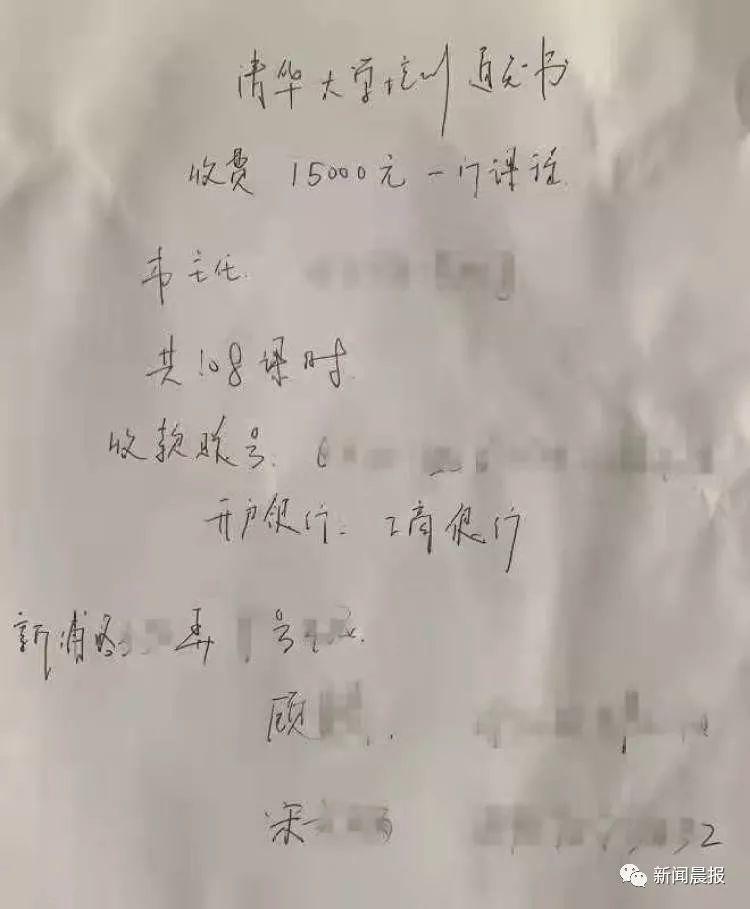 清华大学培训通知书
收费 15000元一门课程
韦主任
共108课时
收款账号:
开户银行: 工商银行
新浦路 弄 号
顾
宋 32
新闻晨报